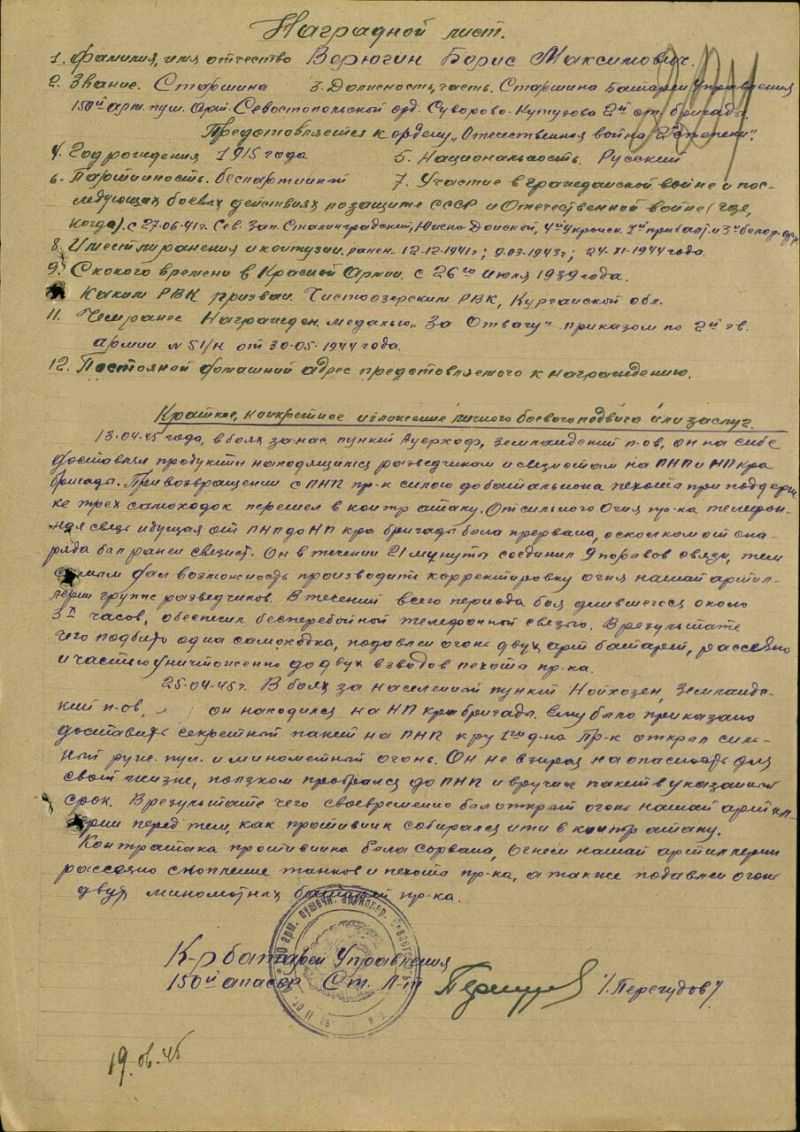 Наградной лист.
1. Фамилия, имя отчество Верюгин Борис Максимович.
2. Звание. Старшина 3. Должность, часть. Старшина Батареи Управления
150й арт. пуш. Арм. Севастопольской орд. Суворово-Кутузова 2й ст. бригада.
Предстовляется к ордену „Отечественная война 2й степени".
4. Год рождения 1915 года 5. Национальность. Русский
6. Партийность. беспартийный 7. Участие в гражданской войне и пос-
ледующих боевых действиях по защите СССР и Отечественной войне (где,
когда). с 27.06.41г. Сев. Зап. Сталинградский, Южно-Донской, 4й Украинск. 1й прибал. и 3й белор. фр.
8. Имеет ли ранения и контузии. ранен. 12-12-1941г; 9.03-1943г; 24-XI-1944 года.
9. С какого времени в Красной Армии. с 26го июля 1939 года.
Каким РВК призван. Чистоозерским РВК, Курганской обл.
11. Чем ранее Награжден. медалью „За Отвагу" приказом по 2й гв.
армии № 51/н от 30-05-1944 года.
12. Постояной домашний адрес предстовляемого к награждению.
Краткое, конкретное изложение личного боевого подвига или заслуг.
13.04.45 года, в боях за нас. пункт Ауерхоф, Земландский п-ов, он на себе
доставлял продукты находящимся разведчикам и связистам на ПНП и НП к-ра
бригады. При возвращении с ПНП пр-к силою до батальиона пехоты при поддерж-
ке трех самоходок перешел в контр атаку. От сильного огня пр-ка телефон-
ная связь идущая от ПНП до НП к-ра бригады была прервана, осколком от сна-
ряда был ранен связист. Он в течении 21 минуты соединил 9 порывов связи, тем
самым дал возможность производить корректировку огня нашей артил-
лерии группе разведчиков. В течении всего периода боя длившегося около
3х часов, обеспечил бесперебойной телефонной связью. В результате
чего подбито одна самоходка, подавлен огонь двух арт батарей, рассеяно
и частью уничтоженно до двух взводов пехоты пр-ка.
25-04-45г. В боях за населенный пункт Нойхозен, Земландс-
кий п-ов, он находился на НП к-ра бригады. Ему было приказано
доставить секретный пакет на ПНП к-ру 1го д-на. Пр-к открыл силь-
ный руж. пул. и минометный огонь. Он не взирая на опасность для
своей жизни, ползком пробрался до ПНП и вручил пакет в указанный
срок. В результате чего своевременно был открыт огонь нашей артил-
лерии перед тем, как противник собирался ити в контр атаку.
Контратака противника была сорвана, огнем нашей артиллерии
рассеяно скопление танков и пехоты пр-ка, а также подавлен огонь
двух минометных батарей пр-ка.
К-р батареи Управления
150й апасбр Ст. Л-т /Перегудов/
19.06.45